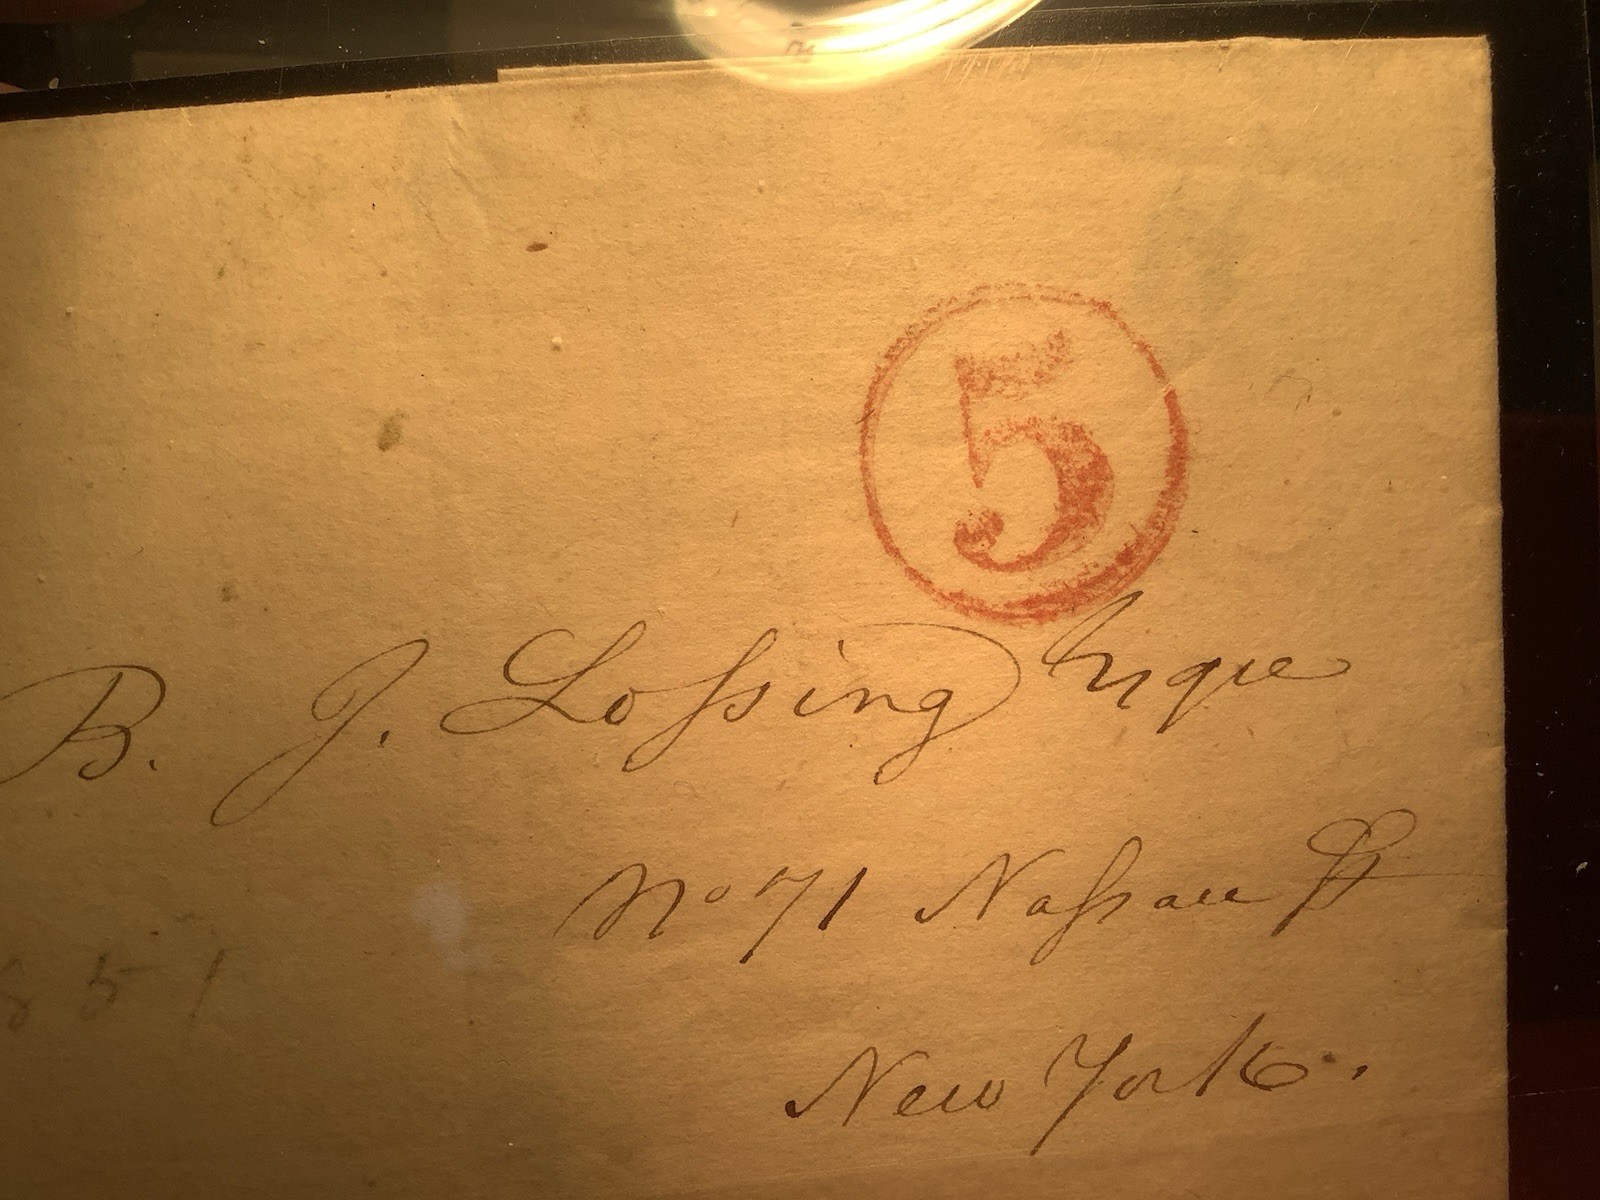 5
B. J. Loſsing Esqre
No 71 Naſsau St
New York.
851